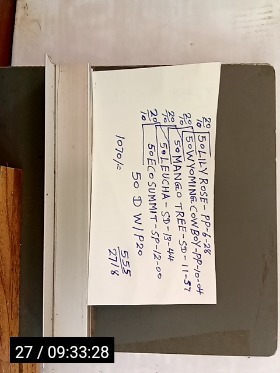 20/10 50 LILY ROSE-PP-6-28
50 WYOMING COWBOY-PP-10-04
20/10 50 MANGO TREE-SD-11-57
20/10 50 LEUCHA-SD-13-44
20/10 50 ECO SUMMIT-SP-12-00
50 D W/P20
1070/c
555
27/8
27 / 09:33:28